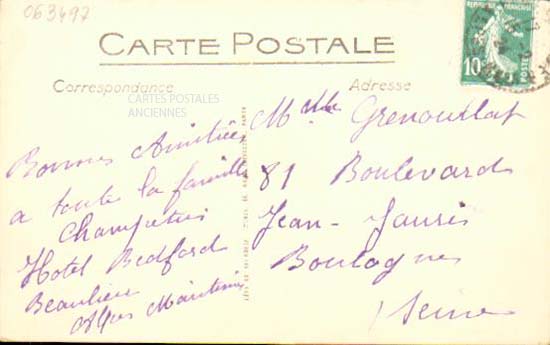 063497
CARTE POSTALE
Correspondance
Adresse
CARTES POSTALES
ANCIENNES
RÉPUBLIQUE FRANÇAISE
10c
POSTES
Bonnes Amitiées
a toute la famille
Hotel Bedford
Beaulieu
Alpes Maritimes
Mlle Grenouillat
81 Boulevard
Jean-Jaurès
Boulogne
Seine